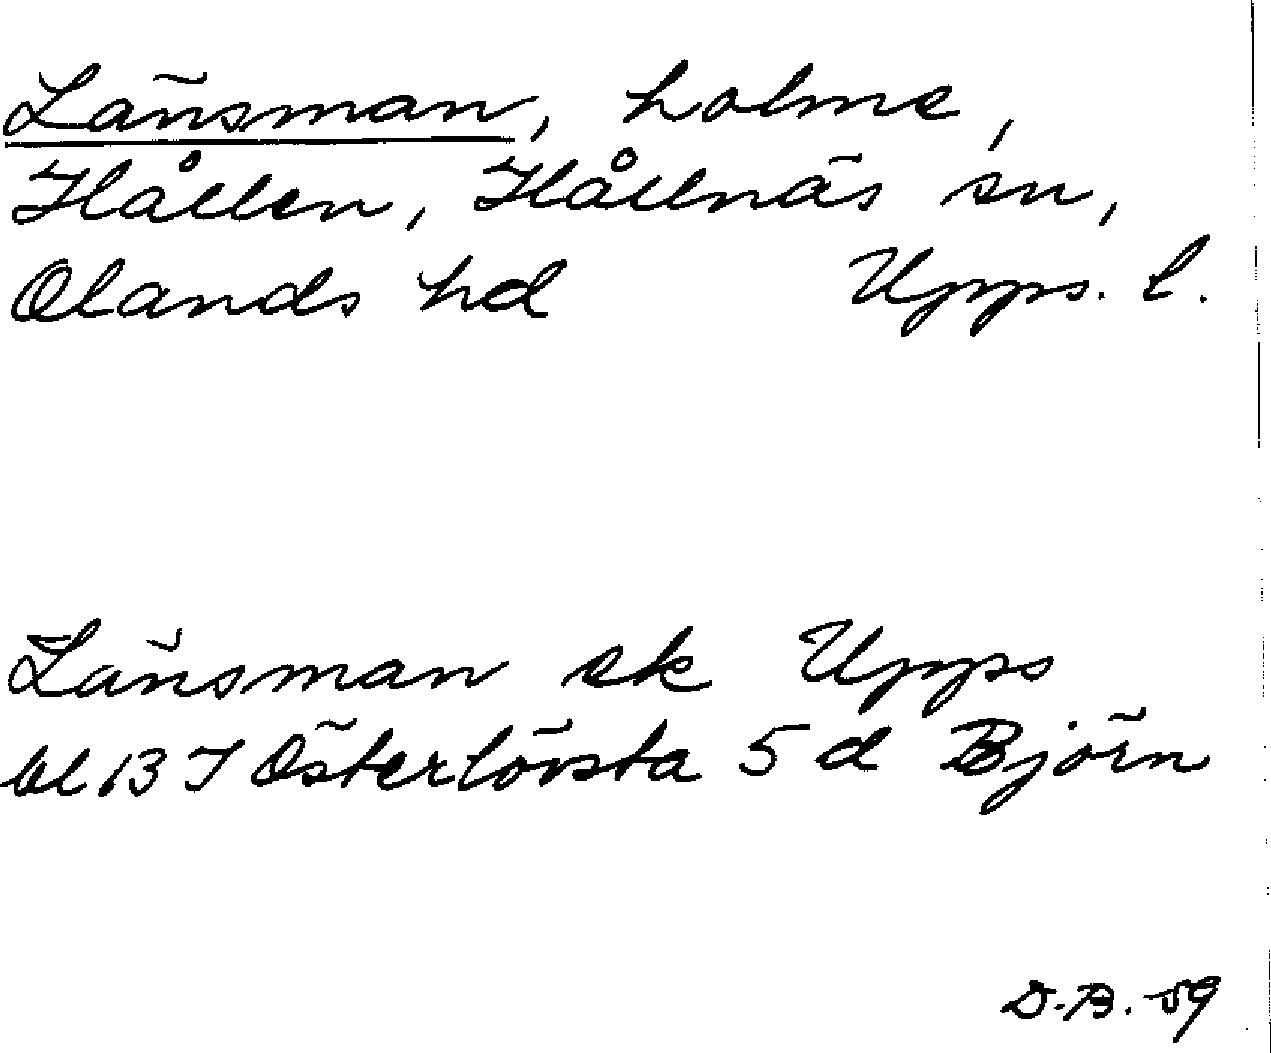 Länsman, holme,
Hållen, Hållnäs sn,
Olands hd Upps. l.
Länsman ek Upps
bl 13 I Österlövsta 5 d Björn
D.B. -59